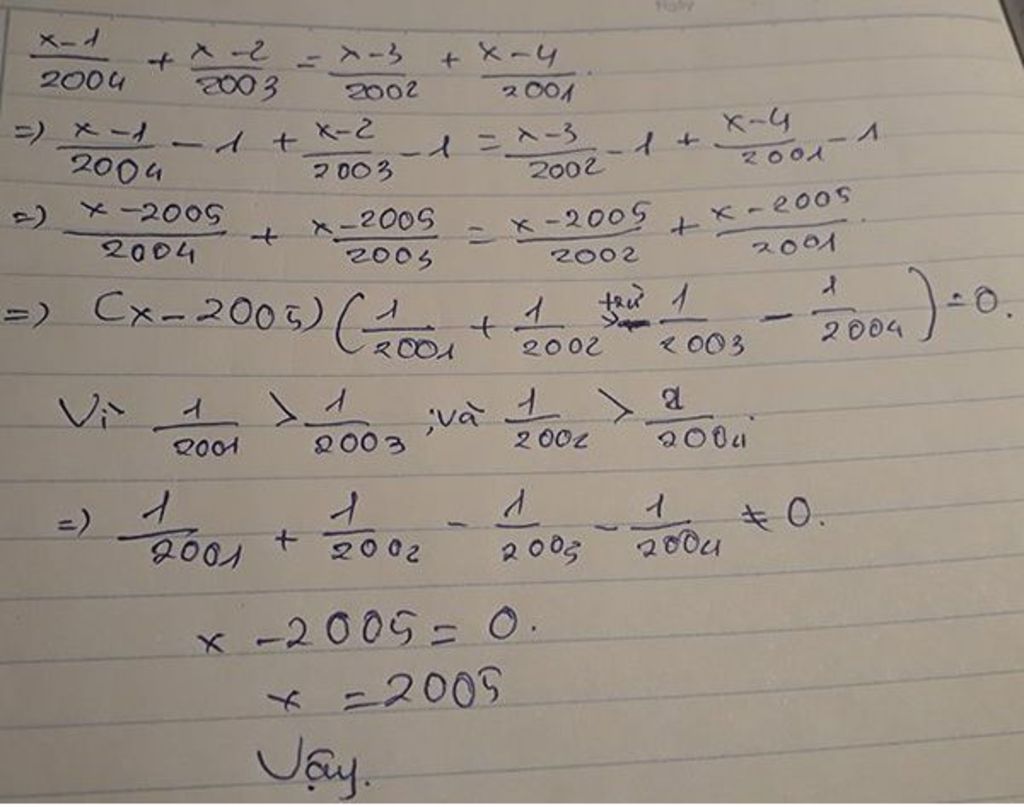 x-1/2004 + x-2/2003 = x-3/2002 + x-4/2001.
=) x-1/2004 - 1 + x-2/2003 - 1 = x-3/2002 - 1 + x-4/2001 - 1
=) x-2005/2004 + x-2005/2003 = x-2005/2002 + x-2005/2001.
=) (x-2005)(1/2001 + 1/2002 trừ - 1/2003 - 1/2004) = 0.
Vì 1/2001 > 1/2003 ; và 1/2002 > 1/2004.
=) 1/2001 + 1/2002 - 1/2003 - 1/2004 ≠ 0.
x - 2005 = 0.
x = 2005
Vậy.